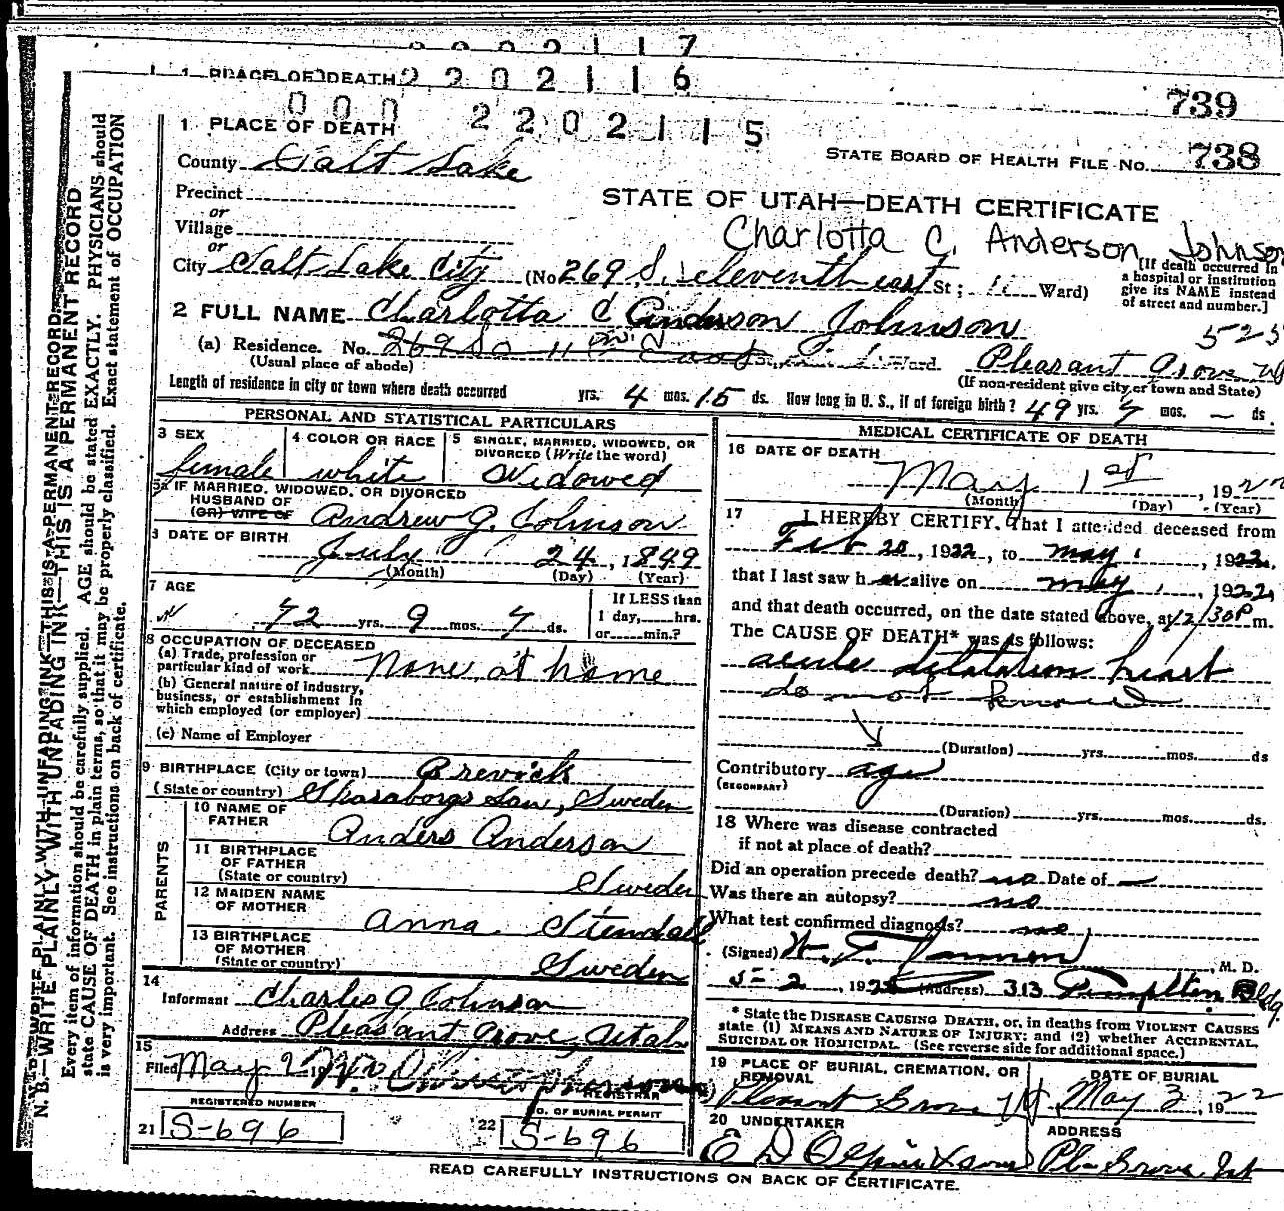 0 0 0 2 1 1 7
1 PLACE OF DEATH 2 2 0 2 1 1 6
739
0 0 0 2 2 0 2 1 1 5
1 PLACE OF DEATH
STATE BOARD OF HEALTH FILE NO. 738
County Salt Lake
Precinct
or
STATE OF UTAH—DEATH CERTIFICATE
Village
or
Charlotta C. Anderson Johnson
City Salt Lake City (No 269 S. eleventh east St; 11 Ward)
[If death occurred in
a hospital or institution
give its NAME instead
of street and number.]
2 FULL NAME Charlotta C Anderson Johnson
525
(a) Residence. No. 269 So 11th East St., Ward. Pleasant Grove
(Usual place of abode)
(If non-resident give city or town and State)
Length of residence in city or town where death occurred yrs. 4 mos. 15 ds. How long in U. S., if of foreign birth? 49 yrs. 7 mos. — ds.
PERSONAL AND STATISTICAL PARTICULARS
3 SEX
female
4 COLOR OR RACE
white
5 SINGLE, MARRIED, WIDOWED, OR
DIVORCED (Write the word)
Widowed
5a IF MARRIED, WIDOWED, OR DIVORCED
HUSBAND OF
(OR) WIFE OF Andrew G. Johnson
DATE OF BIRTH
July 24, 1849
(Month) (Day) (Year)
7 AGE
72 yrs. 9 mos. 7 ds.
If LESS than
1 day,____hrs.
or____min.?
8 OCCUPATION OF DECEASED
(a) Trade, profession or
particular kind of work None, at home
(b) General nature of industry,
business, or establishment in
which employed (or employer)
(c) Name of Employer
9 BIRTHPLACE (City or town) Brewick
(State or country) Skaraborgs Lan, Sweden
PARENTS
10 NAME OF
FATHER Anders Anderson
11 BIRTHPLACE
OF FATHER
(State or country) Sweden
12 MAIDEN NAME
OF MOTHER Anna Stendall
13 BIRTHPLACE
OF MOTHER
(State or country) Sweden
14
Informant Charles G Johnson
Address Pleasant Grove, Utah
15
Filed May 2 19 W. Christophersen
REGISTRAR
REGISTERED NUMBER
21 S-696
NO. OF BURIAL PERMIT
22 S-696
MEDICAL CERTIFICATE OF DEATH
16 DATE OF DEATH
May 1st, 1922
(Month) (Day) (Year)
17 I HEREBY CERTIFY, That I attended deceased from
Feb 20, 1922, to May 1, 1922,
that I last saw her alive on May 1, 1922,
and that death occurred, on the date stated above, at 12/30P m.
The CAUSE OF DEATH* was as follows:
acute dilatation heart
do not know
(Duration) yrs. mos. ds
Contributory age
(SECONDARY)
(Duration) yrs. mos. ds.
18 Where was disease contracted
if not at place of death?
Did an operation precede death? no Date of —
Was there an autopsy? no
What test confirmed diagnosis? no
(Signed) M. D.
5-2, 1922 (Address) 313 Templeton Bldg.
* State the DISEASE CAUSING DEATH, or, in deaths from VIOLENT CAUSES
state (1) MEANS AND NATURE OF INJURY; and (2) whether ACCIDENTAL,
SUICIDAL OR HOMICIDAL. (See reverse side for additional space.)
19 PLACE OF BURIAL, CREMATION, OR
REMOVAL
Pleasant Grove Ut
DATE OF BURIAL
May 3, 1922
20 UNDERTAKER
E D Olpin & Sons
ADDRESS
Ple Grove Ut
READ CAREFULLY INSTRUCTIONS ON BACK OF CERTIFICATE.
N. B.—WRITE PLAINLY WITH UNFADING INK—THIS IS A PERMANENT RECORD
Every item of information should be carefully supplied. AGE should be stated EXACTLY. PHYSICIANS should
state CAUSE OF DEATH in plain terms, so that it may be properly classified. Exact statement of OCCUPATION
is very important. See instructions on back of certificate.